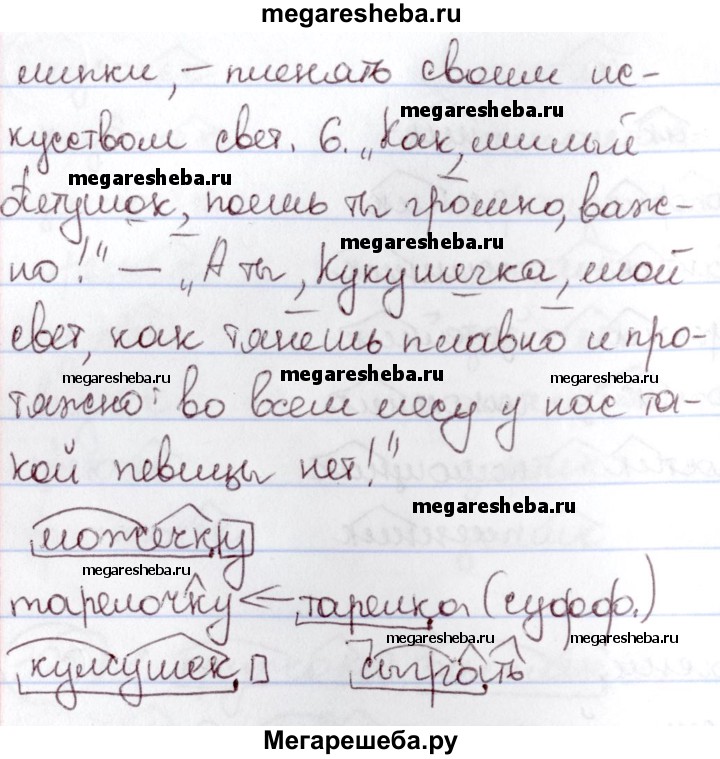 megaresheba.ru
липки, – пленять своим ис-
megaresheba.ru
кусством свет. 6. „Как, милый
megaresheba.ru
Петушок, поешь ты громко, важ-
megaresheba.ru
но!" – „А ты, Кукушечка, мой
свет, как тянешь плавно и про-
megaresheba.ru megaresheba.ru megaresheba.ru
тяжно: во всем лесу у нас та-
кой певицы нет!"
megaresheba.ru
ложечку
megaresheba.ru
тарелочку ← тарелка (суфф.)
megaresheba.ru megaresheba.ru
кукушек сыграть
Мегарешеба.ру